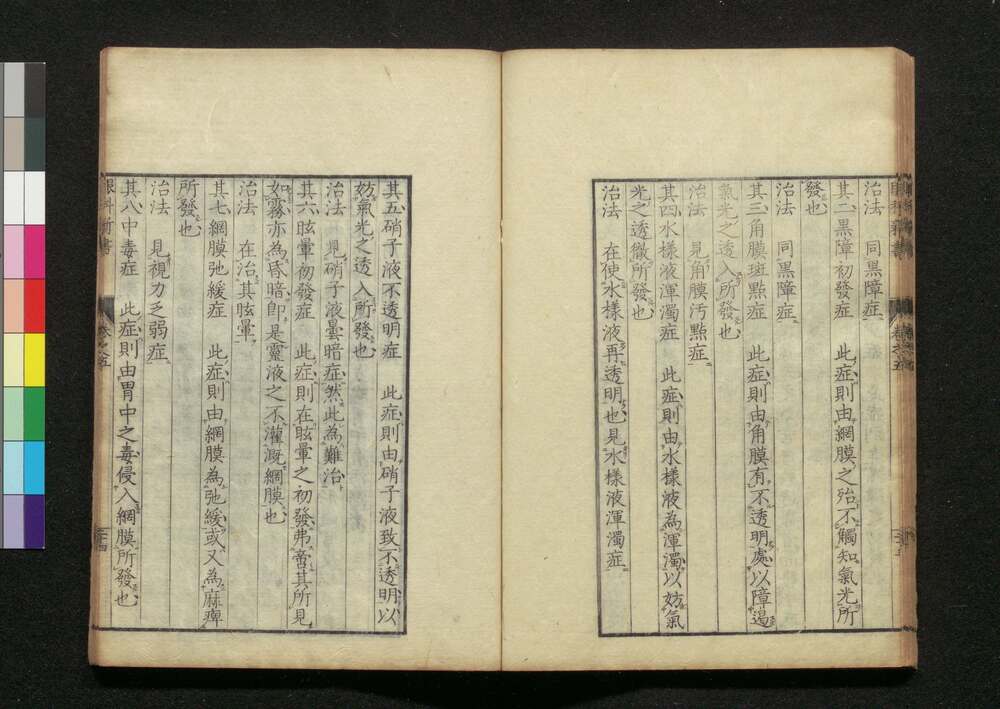 治法　同黒障症
其二黒障初發症　此症則由網膜之殆不觸知氣光所
發也
治法　同黒障症
其三角膜斑點症　此症則由角膜有不透明處以障遏
氣光之透入所發也
治法　見角膜汚點症
其四水樣液渾濁症　此症則由水樣液為渾濁以妨氣
光之透徹所發也
治法　在使水樣液再透明也見水樣液渾濁症
其五硝子液不透明症　此症則由硝子液致不透明以
妨氣光之透入所發也
治法　見硝子液曇暗症然此為難治
其六眩暈初發症　此症則在眩暈之初發弗啻其所見
如霧亦為昏暗即是靈液之不灌漑網膜也
治法　在治其眩暈
其七網膜弛緩症　此症則由網膜為弛緩或又為麻痺
所發也
治法　見視力乏弱症
其八中毒症　此症則由胃中之毒侵入網膜所發也
眼科新書　卷之五